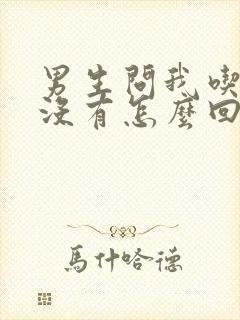 男生問我喫
沒有怎麼回
馬什哈德